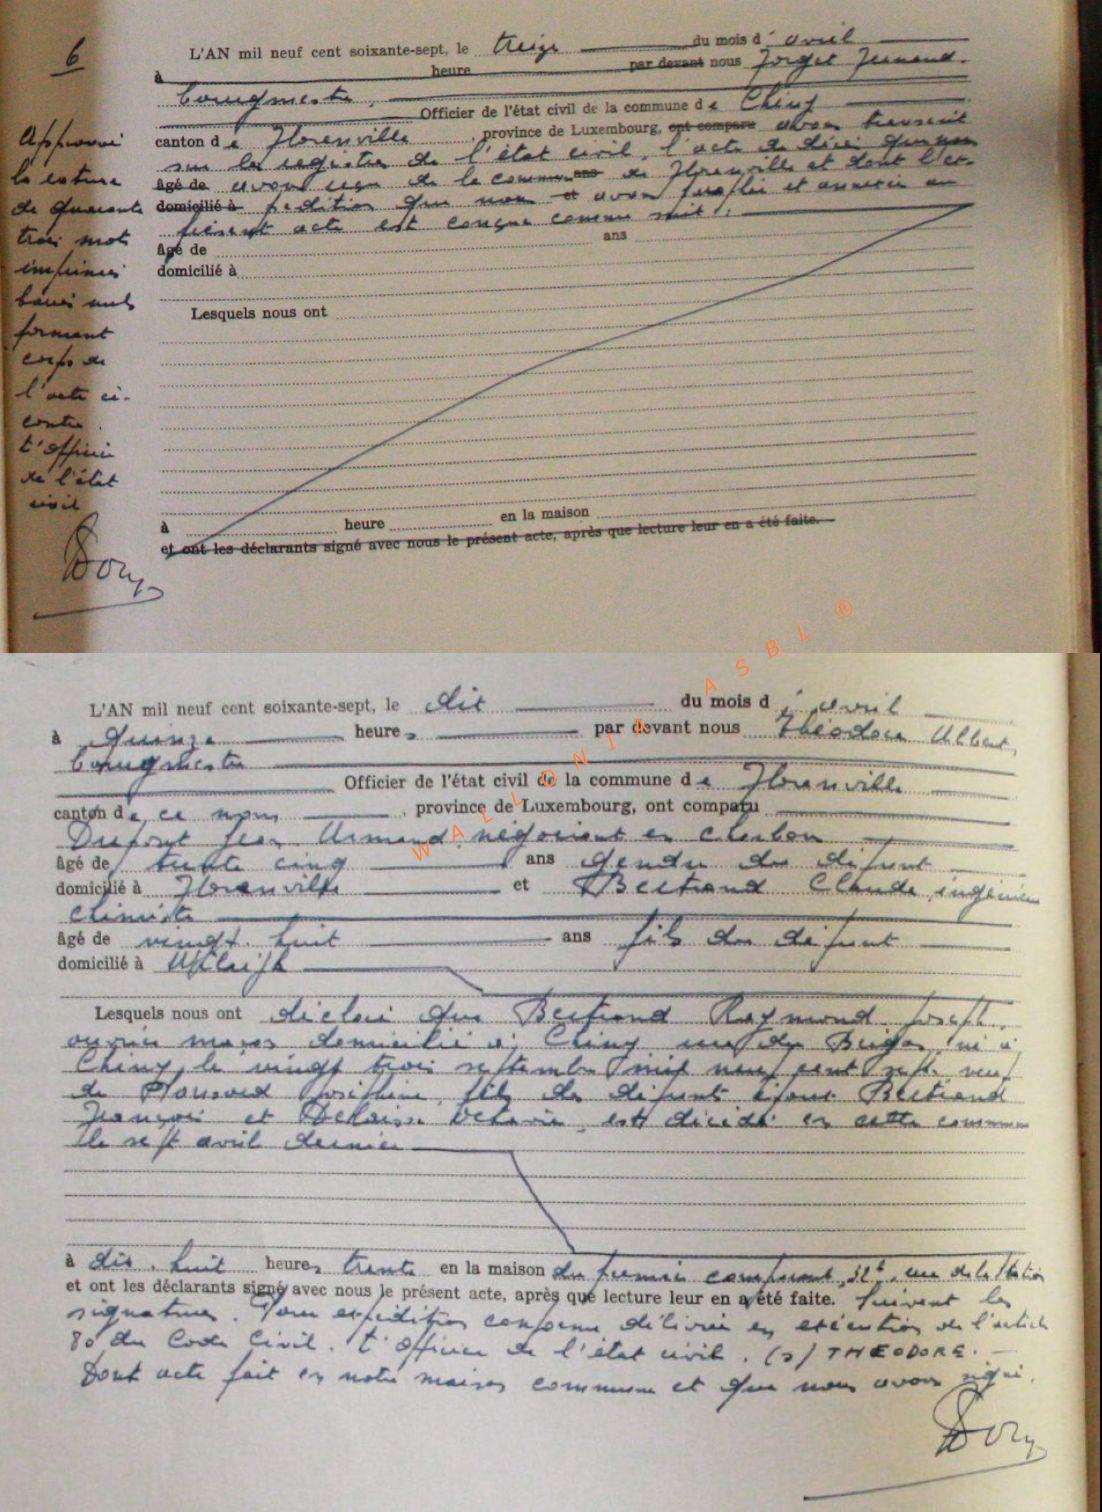 6
L'AN mil neuf cent soixante-sept, le treize du mois d'avril
à heure par devant nous Forget Fernand.
bourgmestre, Officier de l'état civil de la commune de Chiny
canton de Florenville, province de Luxembourg, ont comparu avons transcrit
sur les registres de l'état civil, l'acte de décès que nous
âgé de avons reçu de la commune ans de Florenville et dont l'ex-
domicilié à pédition que nous et avons paraphée et annexée au
présent acte est conçue comme suit :
âgé de ans
domicilié à
Lesquels nous ont
à heure en la maison
et ont les déclarants signé avec nous le présent acte, après que lecture leur en a été faite.
Approuvé
la rature
de quarante
trois mots
imprimés
barrés nuls
formant
corps de
l'acte ci-
contre.
L'officier
de l'état
civil
L'AN mil neuf cent soixante-sept, le dix du mois d'avril
à quinze heures par devant nous Théodore Albert,
bourgmestre
Officier de l'état civil de la commune de Florenville
canton de ce nom, province de Luxembourg, ont comparu
Dupont Jean Armand négociant en charbon
âgé de trente cinq ans gendre du défunt
domicilié à Florenville et Bertrand Claude, ingénieur
chimiste
âgé de vingt-huit ans fils du défunt
domicilié à
Lesquels nous ont déclaré que Bertrand Raymond Joseph,
ouvrier maçon domicilié à Chiny rue du né à
Chiny, le vingt trois septembre mil neuf cent sept, veuf
de Joséphine, fils des défunts époux Bertrand
François et Octavie, est décédé en cette commune
le sept avril dernier
à dix-huit heures trente en la maison du premier comparant, rue de la Station
et ont les déclarants signé avec nous le présent acte, après que lecture leur en a été faite. Suivent les
signatures. Pour expédition conforme délivrée en exécution de l'article
80 du Code Civil. L'officier de l'état civil. (s) THEODORE.
Dont acte fait en notre maison commune et que nous avons signé.
WALLONIA ASBL ®